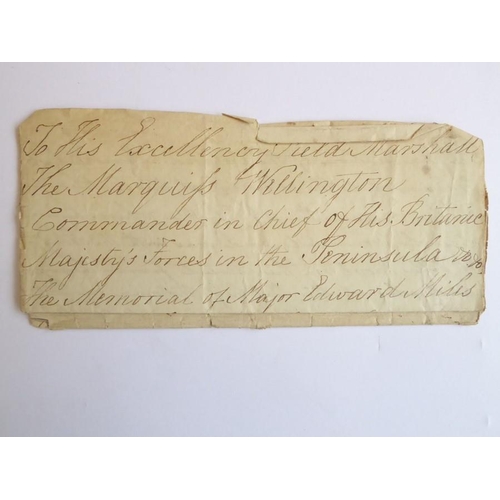 To His Excellency Field Marshall
The Marquiſs Wellington
Commander in Chief of His Britanic
Majesty's Forces in the Peninsula &c &c
The Memorial of Major Edward Miles